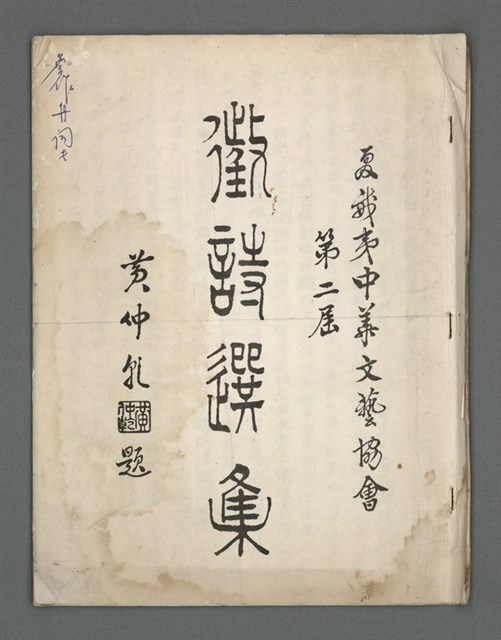 夏威夷中華文藝協會
第二屆
徵詩選集
黃仲乾
黃仲乾
題